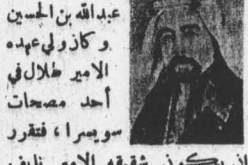 عبدالله بن الحسين
وكان ولي عهده
الامير طلال في
أحد مصحات
سويسرا، فتقرر
ان يكون شقيقه الامير نايف